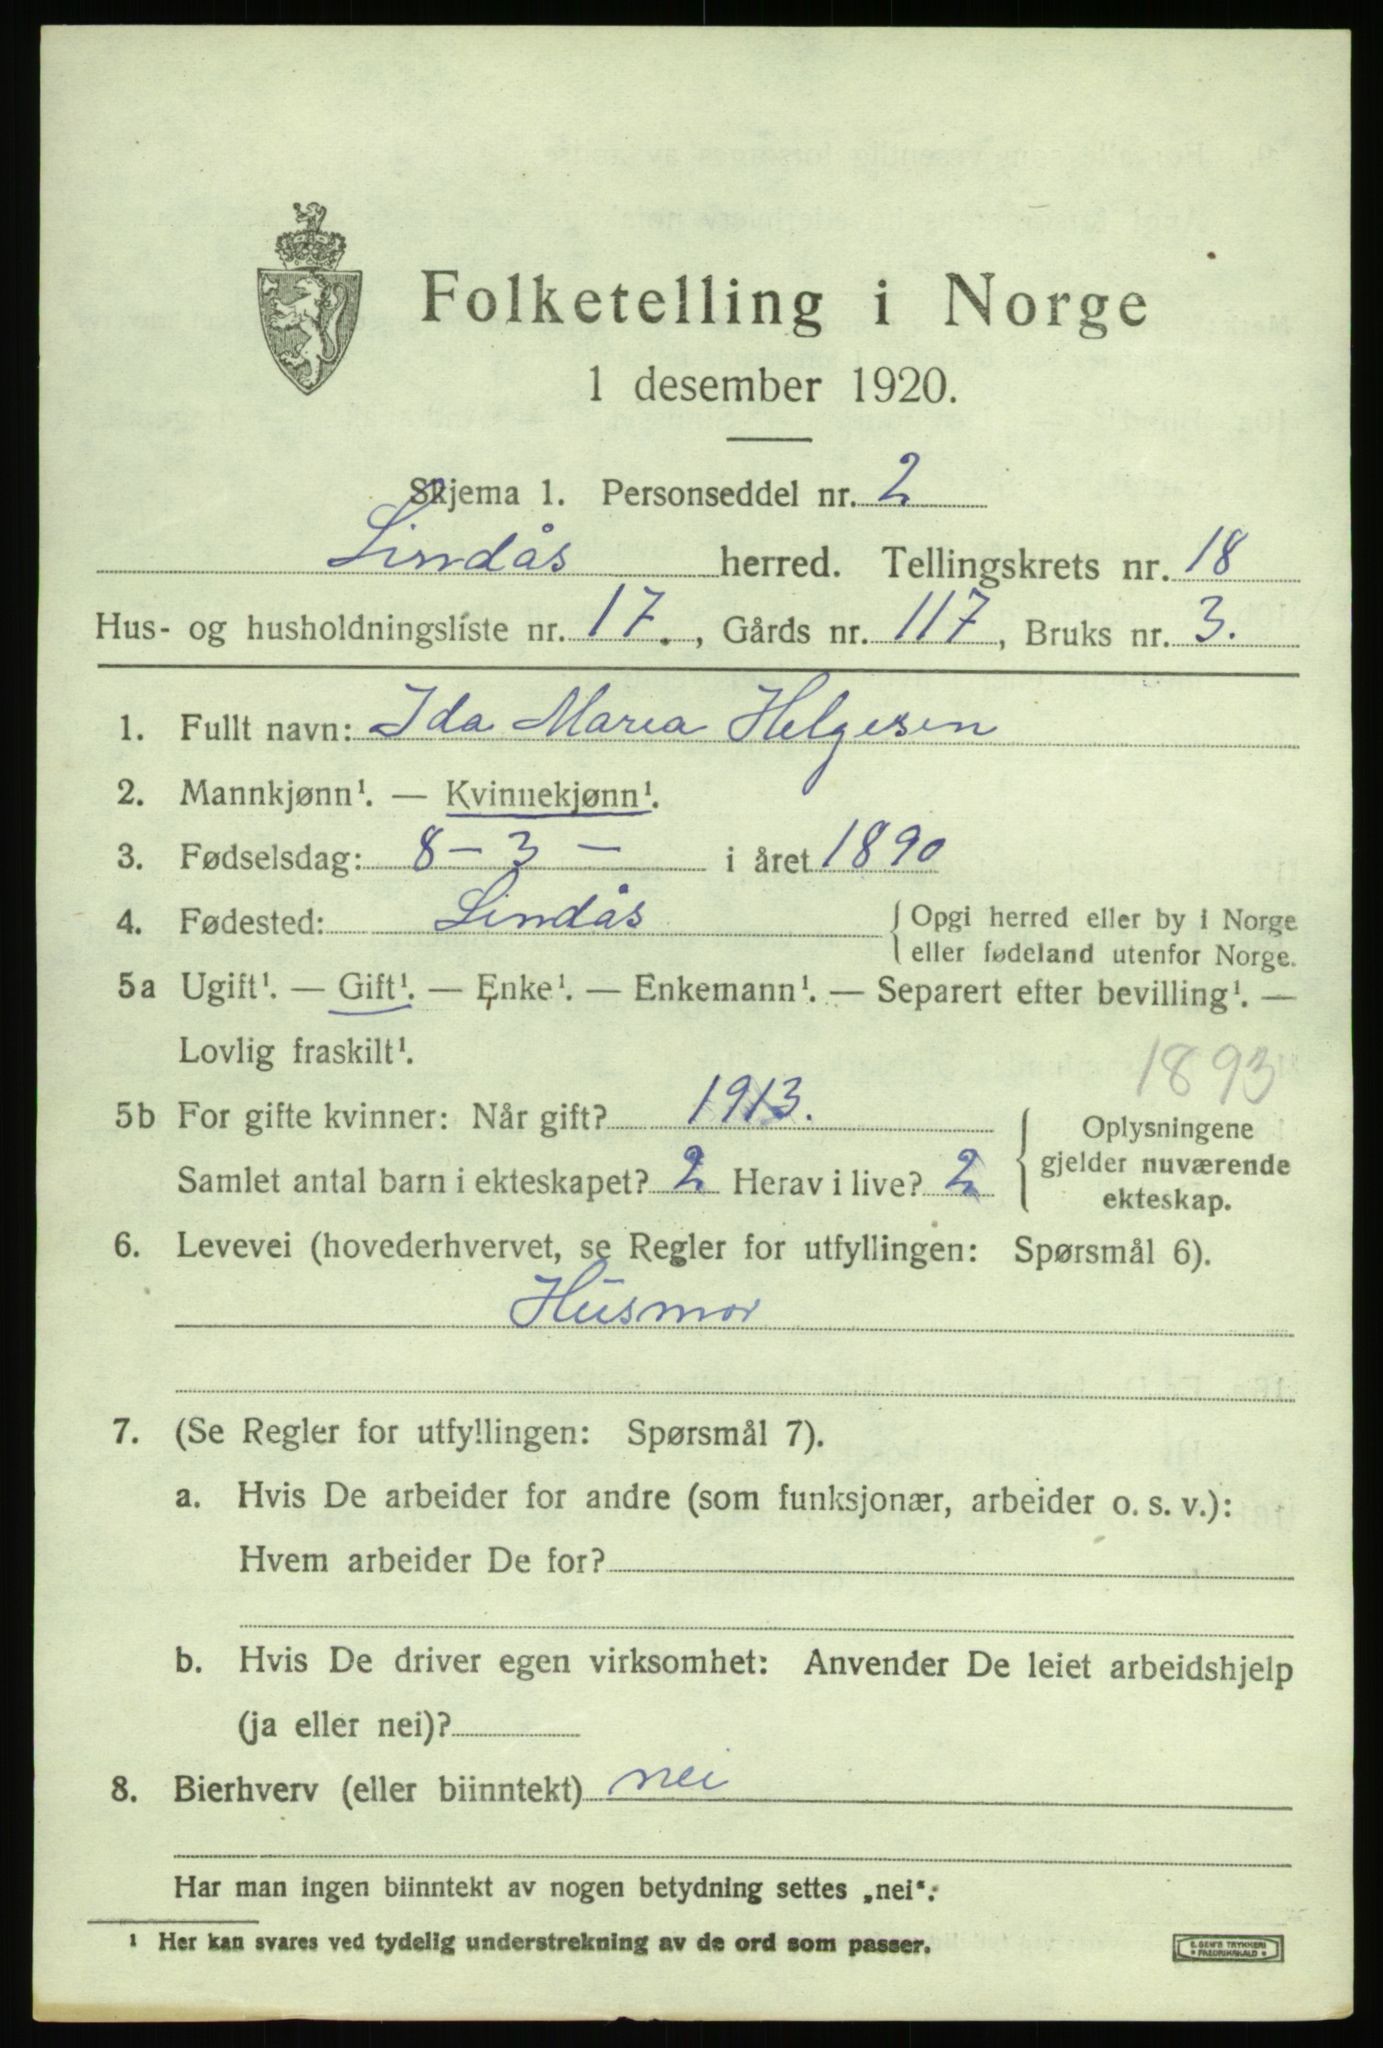 Folketelling i Norge
1 desember 1920.
Skjema 1. Personseddel nr. 2
Lindås herred. Tellingskrets nr. 18
Hus- og husholdningsliste nr. 17. , Gårds nr. 117, Bruks nr. 3.
1. Fullt navn: Ida Maria Helgesen
2. Mannkjønn¹. — Kvinnekjønn¹.
3. Fødselsdag: 8 – 3 – i året 1890
4. Fødested: Lindås { Opgi herred eller by i Norge
eller fødeland utenfor Norge.
5a Ugift¹. — Gift¹. — Enke¹. — Enkemann¹. — Separert efter bevilling¹. —
Lovlig fraskilt¹.
1893
5b For gifte kvinner: Når gift? 1913.
Samlet antal barn i ekteskapet? 2 Herav i live? 2
Oplysningene
gjelder nuværende
ekteskap.
6. Levevei (hovederhvervet, se Regler for utfyllingen: Spørsmål 6).
Husmor
7. (Se Regler for utfyllingen: Spørsmål 7).
a. Hvis De arbeider for andre (som funksjonær, arbeider o. s. v.):
Hvem arbeider De for?
b. Hvis De driver egen virksomhet: Anvender De leiet arbeidshjelp
(ja eller nei)?
8. Bierhverv (eller biinntekt) nei
Har man ingen biinntekt av nogen betydning settes „nei“.
¹ Her kan svares ved tydelig understrekning av de ord som passer.
E. SEM'S TRYKKERI
FREDRIKSHALD